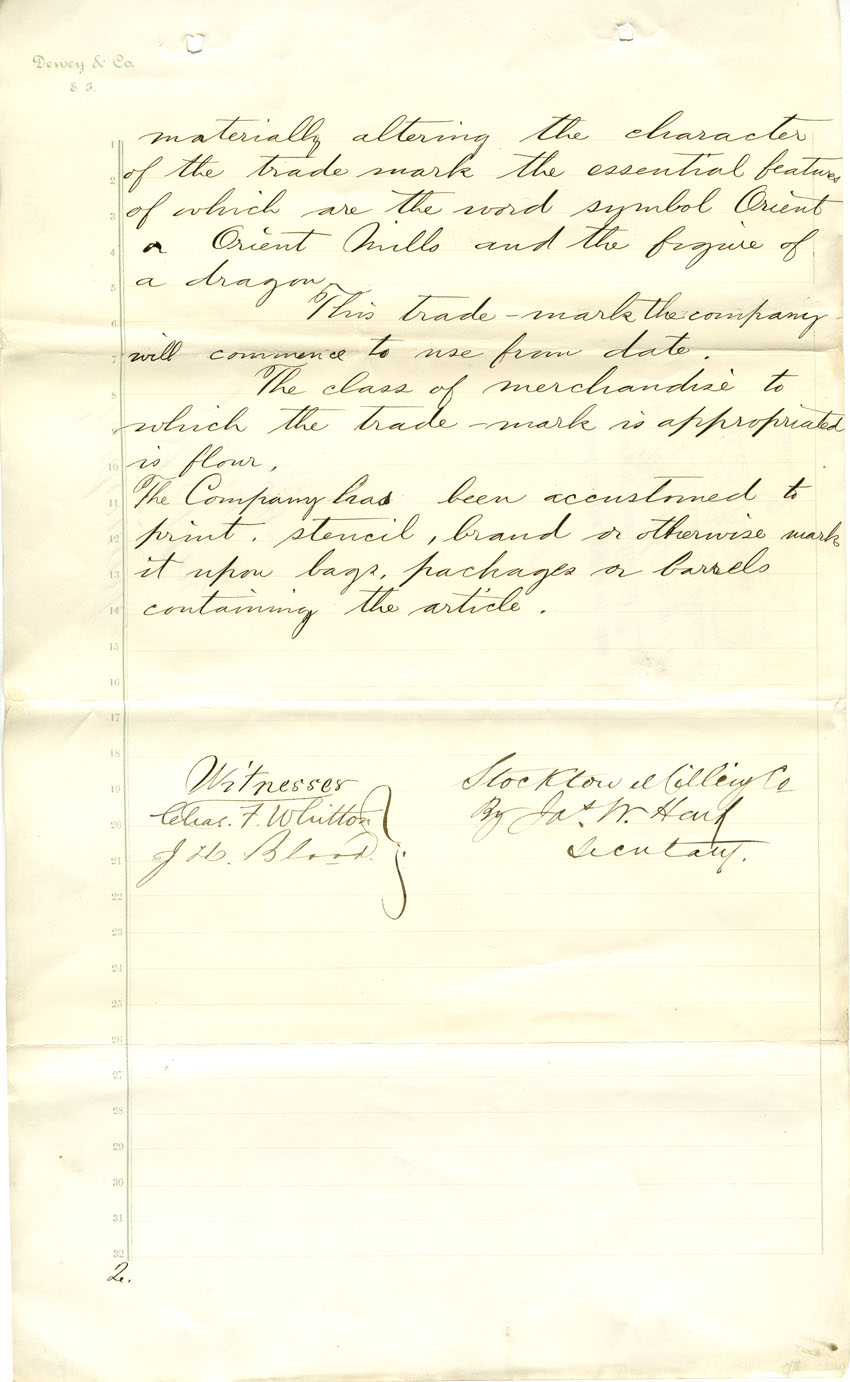 Dewey & Co.
S. F.
1 materially altering the character
2 of the trade mark the essential features
3 of which are the word symbol Orient
4 or Orient Mills and the figure of
5 a dragon
6 This trade-mark the company
7 will commence to use from date.
8 The class of merchandise to
9 which the trade-mark is appropriated
10 is flour.
11 The Company has been accustomed to
12 print. stencil, brand or otherwise mark
13 it upon bags, packages or barrels
14 containing the article.
15
16
17
18
19 Witnesses Stockton Milling Co
20 Chas. F. Whitton By Jas. W. Hart
21 J H. Blood. Secretary.
22
23
24
25
26
27
28
29
30
31
32
2.